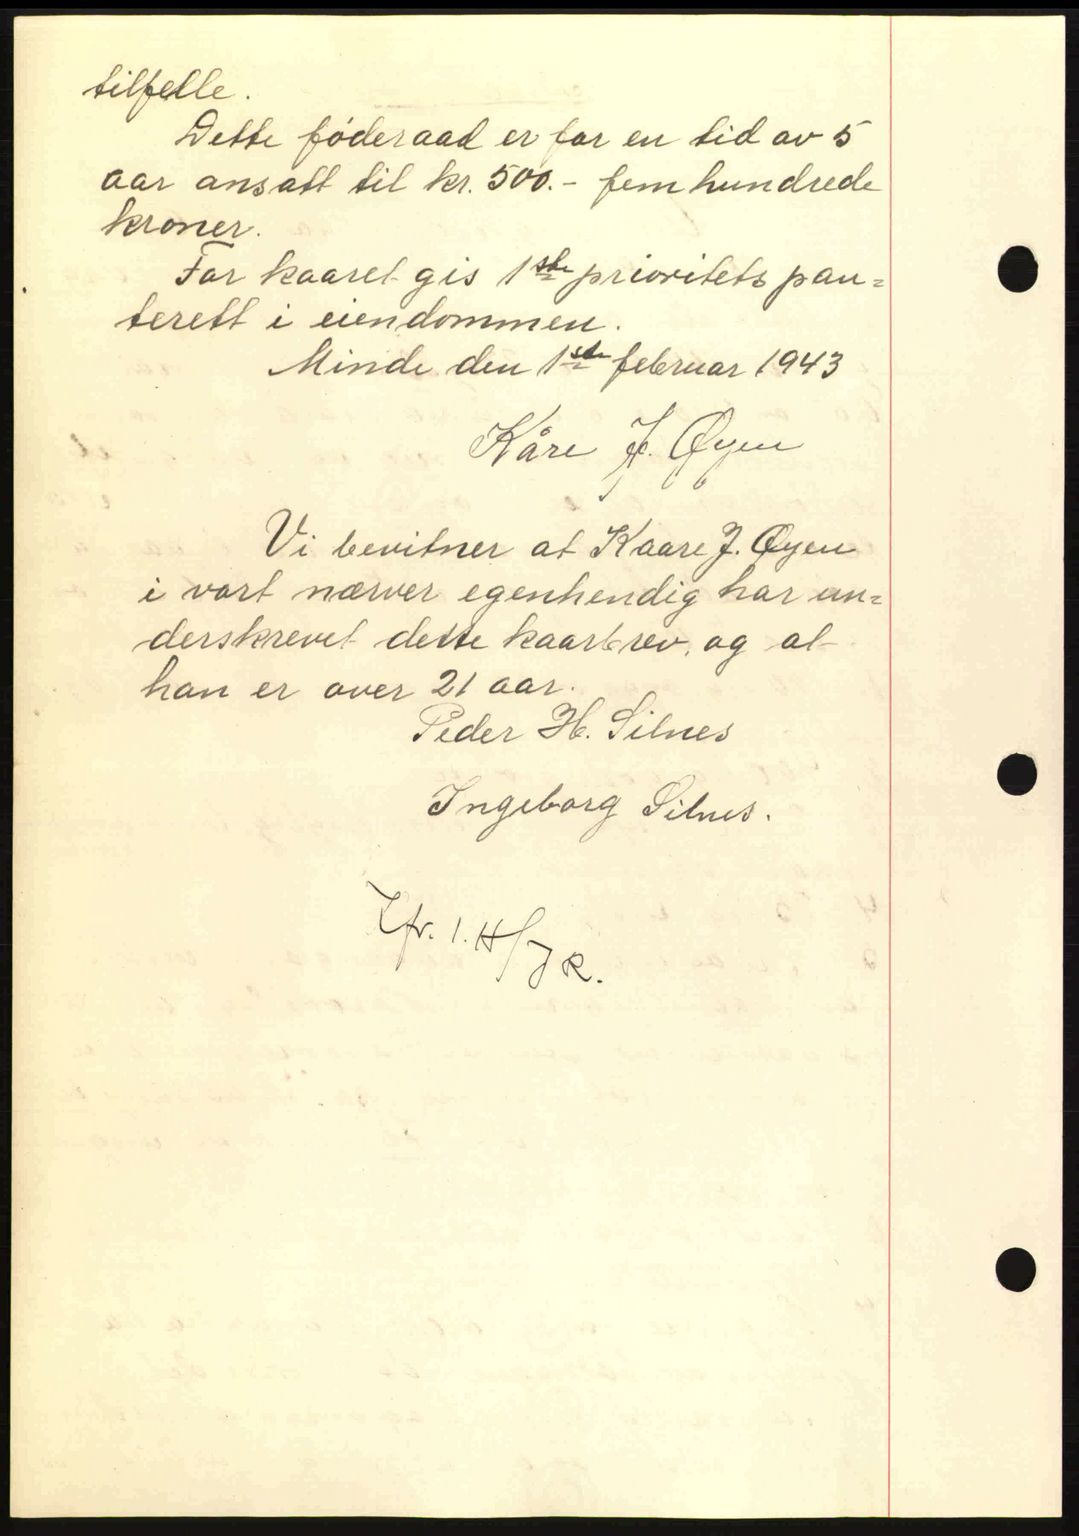 tilfelle.
Dette føderaad er for en tid av 5
aar ansatt til kr. 500.- fem hundrede
kroner.
For kaaret gis 1ste prioritets pan=
terett i eiendommen.
Minde den 1ste februar 1943
Kåre J. Øyen
Vi bevitner at Kaare J. Øyen
i vort nærver egenhendig har un=
derskrevet dette kaarbrev, og at
han er over 21 aar.
Peder H. Silnes
Ingeborg Silnes.